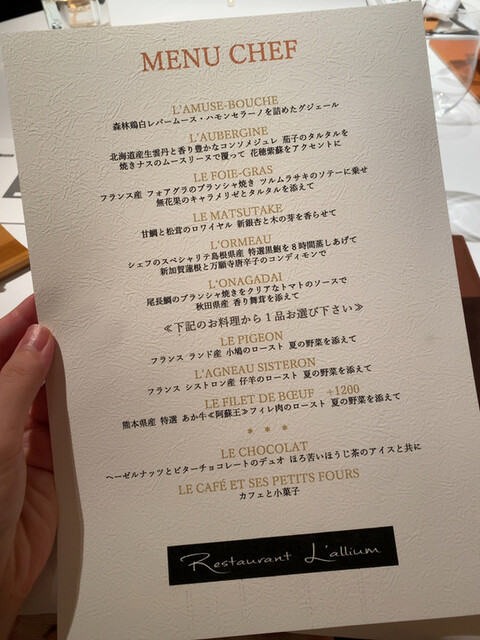 MENU CHEF
L'AMUSE-BOUCHE
森林鶏白レバームース・ハモンセラーノを詰めたグジェール
L'AUBERGINE
北海道産生雲丹と香り豊かなコンソメジュレ 茄子のタルタルを
焼きナスのムースリーヌで覆って 花穂紫蘇をアクセントに
LE FOIE-GRAS
フランス産 フォアグラのプランシャ焼き ツルムラサキのソテーに乗せ
無花果のキャラメリゼとタルタルを添えて
LE MATSUTAKE
甘鯛と松茸のロワイヤル 新銀杏と木の芽を香らせて
L'ORMEAU
シェフのスペシャリテ島根県産 特選黒鮑を8時間蒸しあげて
新加賀蓮根と万願寺唐辛子のコンディモンで
L'ONAGADAI
尾長鯛のプランシャ焼きをクリアなトマトのソースで
秋田県産 香り舞茸を添えて
≪下記のお料理から1品お選び下さい≫
LE PIGEON
フランス ランド産 小鳩のロースト 夏の野菜を添えて
L'AGNEAU SISTERON
フランス シストロン産 仔羊のロースト 夏の野菜を添えて
LE FILET DE BŒUF +1200
熊本県産 特選 あか牛≪阿蘇王≫フィレ肉のロースト 夏の野菜を添えて
* * *
LE CHOCOLAT
ヘーゼルナッツとビターチョコレートのデュオ ほろ苦いほうじ茶のアイスと共に
LE CAFÉ ET SES PETITS FOURS
カフェと小菓子
Restaurant L'allium